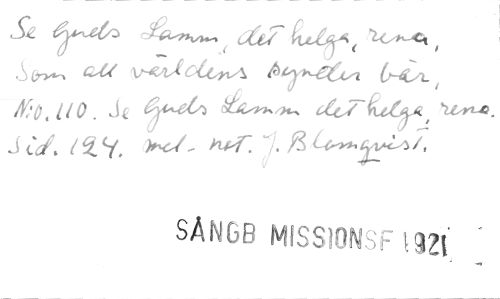 Se Guds Lamm, det helga, rena,
Som all världens synder bär,
N:o. 110. Se Guds Lamm det helga, rena.
Sid. 124. mel. not. J. Blomqvist.
SÅNGB MISSIONSF 1921